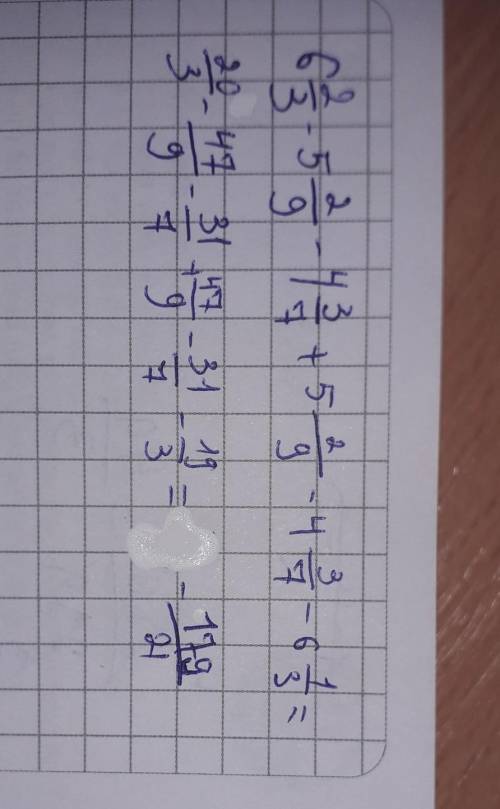 6 2/3 - 5 2/9 - 4 3/7 + 5 2/9 - 4 3/7 - 6 1/3 =
20/3 - 47/9 - 31/7 + 47/9 - 31/7 - 19/3 = - 179/21